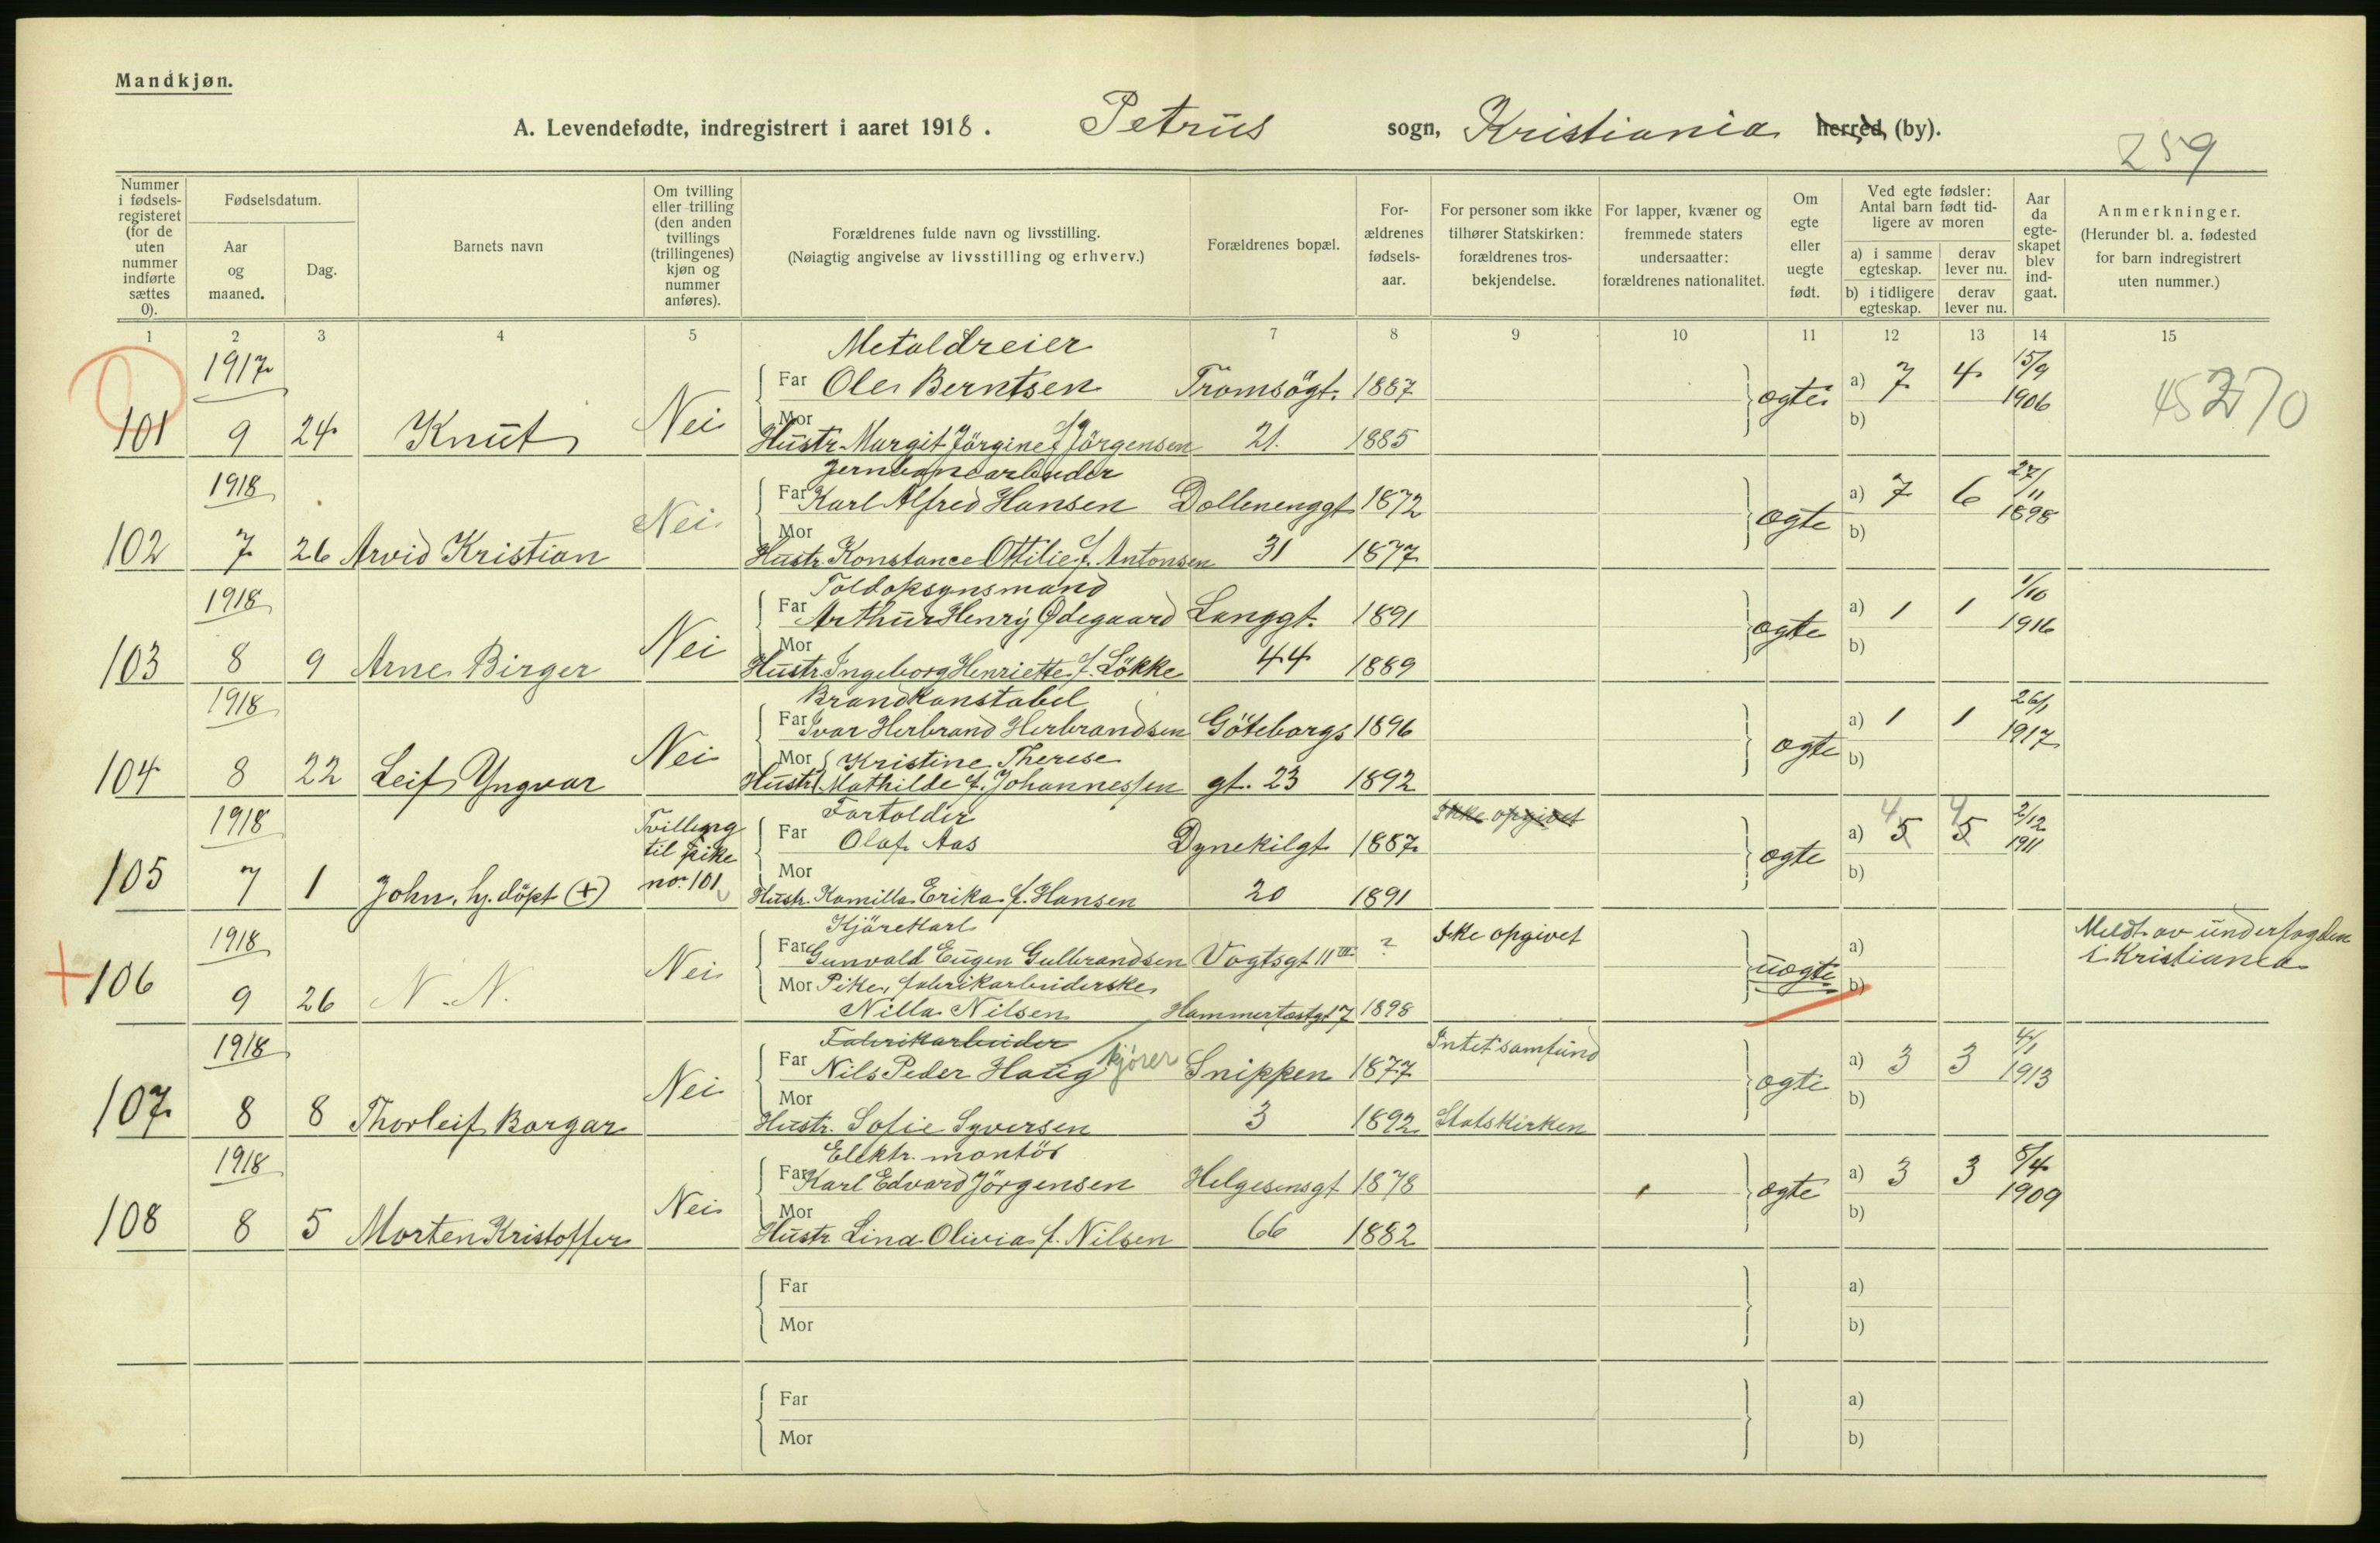 Mandkjøn.
A. Levendefødte, indregistrert i aaret 1918. Petrus sogn, Kristiania herred, (by).
259
Nummer i fødsels-registeret (for de uten nummer indførte sættes 0).
Fødselsdatum.
Aar og maaned.
Dag.
Barnets navn
Om tvilling eller trilling (den anden tvillings (trillingenes) kjøn og nummer anføres).
Forældrenes fulde navn og livsstilling.
(Nøiagtig angivelse av livsstilling og erhverv.)
Forældrenes bopæl.
For-ældrenes fødsels-aar.
For personer som ikke tilhører Statskirken: forældrenes tros-bekjendelse.
For lapper, kvæner og fremmede staters undersaatter: forældrenes nationalitet.
Om egte eller uegte født.
Ved egte fødsler: Antal barn født tid-ligere av moren
a) i samme egteskap.
derav lever nu.
b) i tidligere egteskap.
derav lever nu.
Aar da egte-skapet blev ind-gaat.
Anmerkninger.
(Herunder bl. a. fødested for barn indregistrert uten nummer.)
1 2 3 4 5 6 7 8 9 10 11 12 13 14 15
1917 Metaldreier
Far Ole Berntsen Tromsögt. 1887 a) 7 4 15/9
101 9 24 Knut Nei ægte 1906
Mor Hustr. Margit Jörgine f. Jörgensen 21. 1885 b)
1918 Jernbanearbeider
Far Karl Alfred Hansen Dællenenggt 1872 a) 7 6 27/11
102 7 26 Arvid Kristian Nei ægte 1898
Mor Hustr. Konstance Ottilie f. Antonsen 31 1877 b)
1918 Toldopsynsmand
Far Arthur Henry Ødegaard Langgt. 1891 a) 1 1 1/10
103 8 9 Arne Birger Nei ægte 1916
Mor Hustr. Ingeborg Henriette f. Lökke 44 1889 b)
1918 Brandkonstabel
Far Ivar Herbrand Herbrandsen Göteborgs 1896 a) 1 1 26/1
104 8 22 Leif Yngvar Nei ægte 1917
Mor Kristine Therese
Hustr. Mathilde f. Johannessen gt. 23 1892 b)
1918 Tvilling til pike no. 101 Fortolder Ikke opgivet 4 4 2/12
Far Olaf Aas Dynekilgt 1887 a) 5 5 1911
105 7 1 John, hj. döpt (+) ægte
Mor Hustr. Kamilla Erika f. Hansen 20 1891 b)
1918 Kjörekarl Ikke opgivet Meldt av underfogden
Far Gunvald Eugen Gulbrandsen Vogtsgt 11 III ? a) i Kristiania
106 9 26 N. N. Nei uægte
Mor Pike, fabrikarbeiderske b)
Nilla Nilsen Hammerfastgt 7 1898
1918 Fabrikarbeider Intet samfund 4/1
Far Nils Peder Haug kjører Snippen 1877 a) 3 3 1913
107 8 8 Thorleif Borgar Nei ægte
Mor Hustr. Sofie Syversen 3 1892 Statskirken b)
1918 Elektr. montör
Far Karl Edvard Jörgensen Helgesensgt 1878 a) 3 3 5/4
108 8 5 Morten Kristoffer Nei ægte 1909
Mor Hustr Lina Olivia f. Nilsen 66 1882 b)
Far a)
Mor b)
Far a)
Mor b)